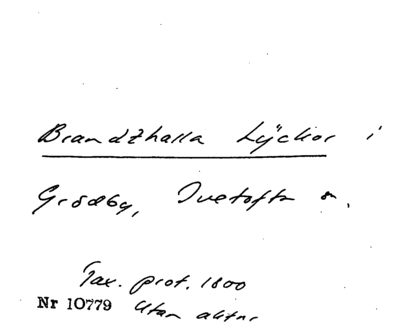 Brandzhalla Lÿckor i
Grödby, Ivetofta sn.
Tax. prot. 1800
Nr 10779 Utan aktnr